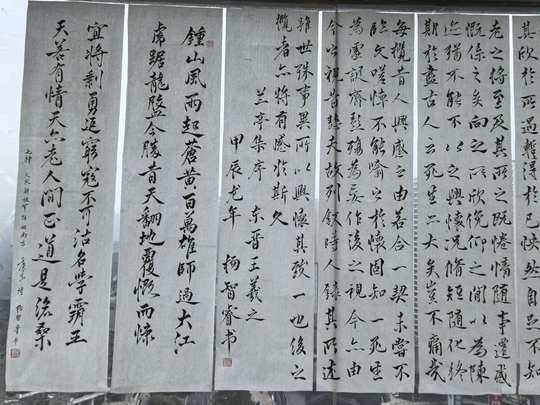 其欣於所遇輒得於己怏然自足不知
老之將至及其所之既惓情隨事遷感
慨係之矣向之所欣俛仰之間以為陳
迹猶不能不以之興懷況脩短隨化終
期於盡古人云死生亦大矣豈不痛哉
每攬昔人興感之由若合一契未嘗不
臨文嗟悼不能喻之於懷固知一死生
為虛誕齊彭殤為妄作後之視今亦由
今之視昔悲夫故列敘時人錄其所述
雖世殊事異所以興懷其致一也後之
攬者亦將有感於斯文
兰亭集序 東晉王羲之
甲辰龙年 楊智睿书
鍾山風雨起蒼黃百萬雄師過大江
虎踞龍盤今勝昔天翻地覆慨而慷
宜將剩勇追窮寇不可沽名學霸王
天若有情天亦老人間正道是滄桑
七律 人民解放軍佔領南京